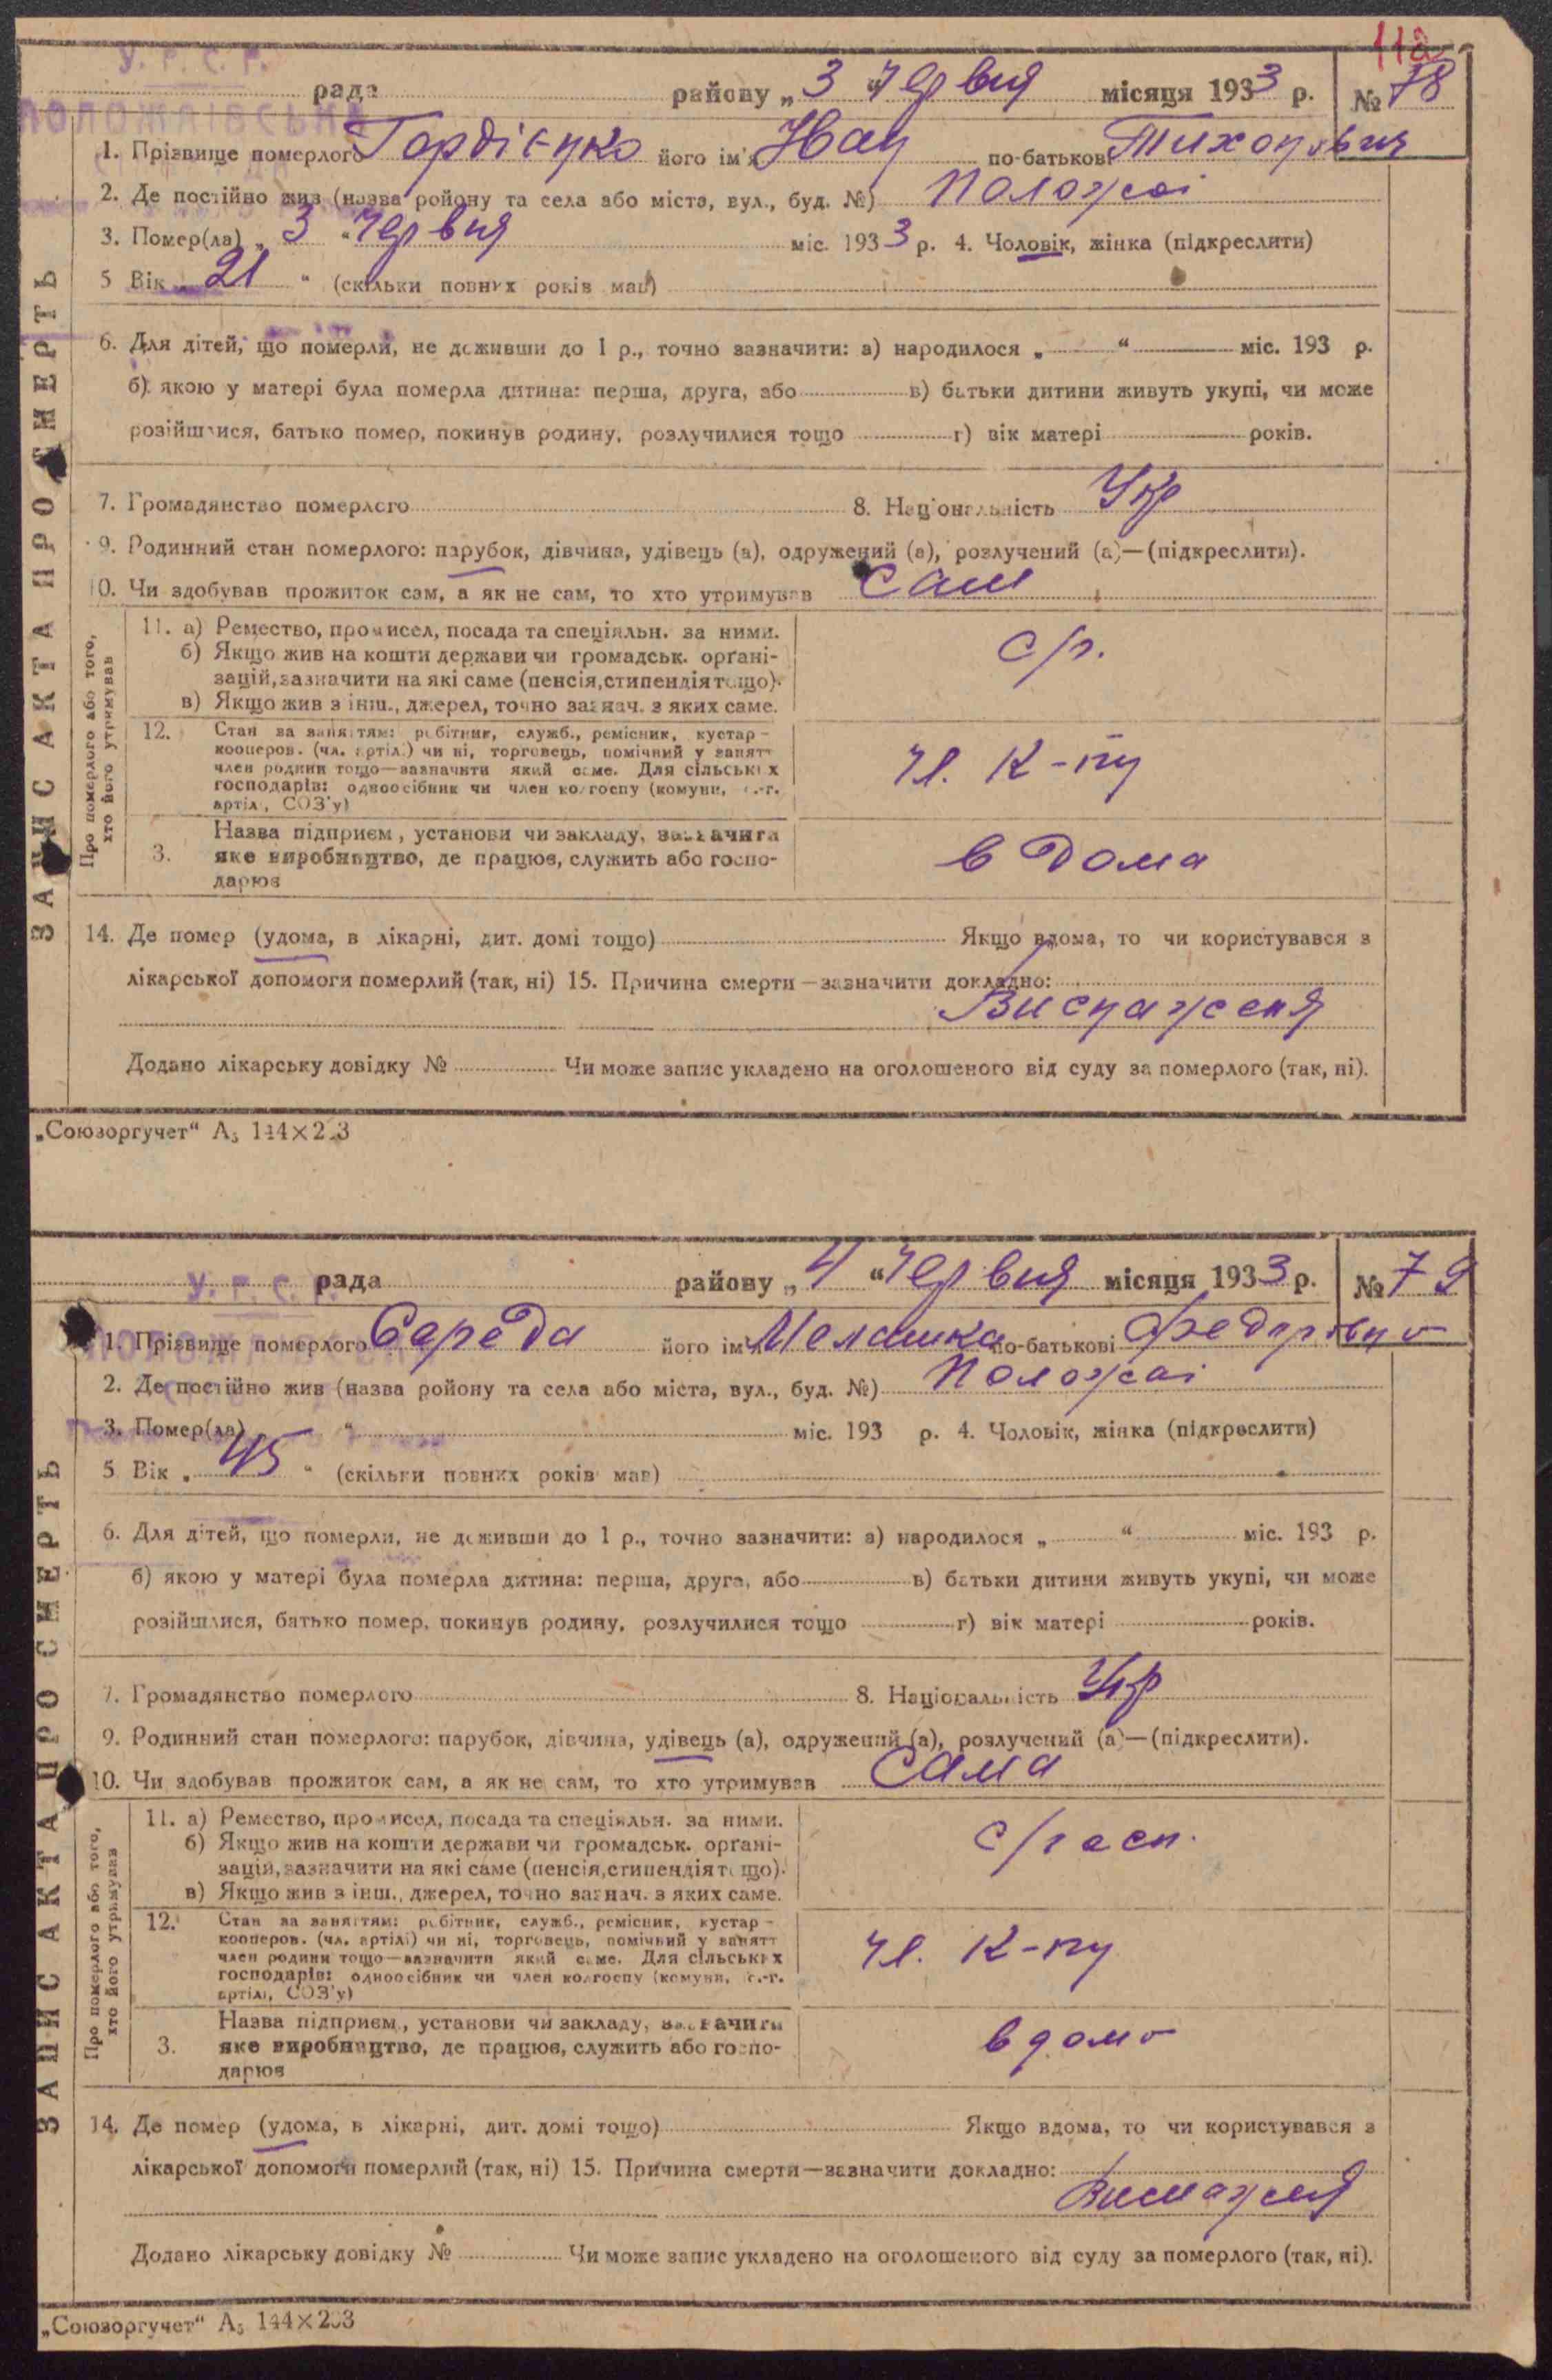 112
У. Р. С. Р.
рада районну „ 3 “ Червня місяця 1933 р. № 78
ПОЛОЖАЇВСЬКА
1. Прізвище померлого Гордієнко його ім'я Іван по-батькові Тихонович
2. Де постійно жив (назва ройону та села або міста, вул., буд. №) Положаї
3. Помер(ла) „ 3 “ Червня міс. 1933 р. 4. Чоловік, жінка (підкреслити)
5 Вік „ 21 “ (скільки повних років мав)
6. Для дітей, що померли, не доживши до 1 р., точно зазначити: а) народилося „ “ міс. 193 р.
б) якою у матері була померла дитина: перша, друга, або в) батьки дитини живуть укупі, чи може
розійшлися, батько помер, покинув родину, розлучилися тощо г) вік матері років.
7. Громадянство померлого 8. Національність Укр
9. Родинний стан померлого: парубок, дівчина, удівець (а), одружений (а), розлучений (а)—(підкреслити).
10. Чи здобував прожиток сам, а як не сам, то хто утримував Сам
ЗАПИС АКТА ПРО СМЕРТЬ
Про померлого або того, хто його утримував
11. а) Ремество, промисел, посада та спеціяльн. за ними.
б) Якщо жив на кошти держави чи громадськ. орґані-
зацій, зазначити на які саме (пенсія, стипендія тощо).
в) Якщо жив з інш., джерел, точно зазнач. з яких саме.
с/г.
12. Стан за заняттям: робітник, служб., ремісник, кустар-
кооперов. (чл. артілі) чи ні, торговець, помічний у занятт
член родини тощо—зазначити який саме. Для сільських
господарів: одноосібник чи член колгоспу (комуни, с.-г.
артілі, СОЗ'у)
Чл. К-пу
3. Назва підприєм., установи чи закладу, зазначити
яке виробництво, де працює, служить або госпо-
дарює
в дома
14. Де помер (удома, в лікарні, дит. домі тощо) Якщо вдома, то чи користувався з
лікарської допомоги померлий (так, ні) 15. Причина смерти—зазначити докладно:
Виснаженя
Додано лікарську довідку № Чи може запис укладено на оголошеного від суду за померлого (так, ні).
„Союзоргучет“ А5 144×203
У. Р. С. Р.
рада району „ 4 “ Червня місяця 1933 р. № 79
1. Прізвище померлого Середа його ім'я Мелашка по-батькові Федорівна
2. Де постійно жив (назва ройону та села або міста, вул., буд. №) Положаї
3. Помер(ла) “ міс. 193 р. 4. Чоловік, жінка (підкреслити)
5 Вік „ 45 “ (скільки повних років мав)
6. Для дітей, що померли, не доживши до 1 р., точно зазначити: а) народилося „ “ міс. 193 р.
б) якою у матері була померла дитина: перша, друга, або в) батьки дитини живуть укупі, чи може
розійшлися, батько помер, покинув родину, розлучилися тощо г) вік матері років.
7. Громадянство померлого 8. Національність Укр
9. Родинний стан померлого: парубок, дівчина, удівець (а), одружений (а), розлучений (а)—(підкреслити).
10. Чи здобував прожиток сам, а як не сам, то хто утримував Сама
ЗАПИС АКТА ПРО СМЕРТЬ
Про померлого або того, хто його утримував
11. а) Ремество, промисел, посада та спеціяльн. за ними.
б) Якщо жив на кошти держави чи громадськ. орґані-
зацій, зазначити на які саме (пенсія, стипендія тощо).
в) Якщо жив з інш., джерел, точно зазнач. з яких саме.
с/госп.
12. Стан за заняттям: робітник, служб., ремісник, кустар-
кооперов. (чл. артілі) чи ні, торговець, помічний у занятт
член родини тощо—зазначити який саме. Для сільських
господарів: одноосібник чи член колгоспу (комуни, с.-г.
артілі, СОЗ'у)
Чл. К-пу
3. Назва підприєм., установи чи закладу, зазначити
яке виробництво, де працює, служить або госпо-
дарює
в дома
14. Де помер (удома, в лікарні, дит. домі тощо) Якщо вдома, то чи користувався з
лікарської допомоги померлий (так, ні) 15. Причина смерти—зазначити докладно:
Виснаженя
Додано лікарську довідку № Чи може запис укладено на оголошеного від суду за померлого (так, ні).
„Союзоргучет“ А5 144×203